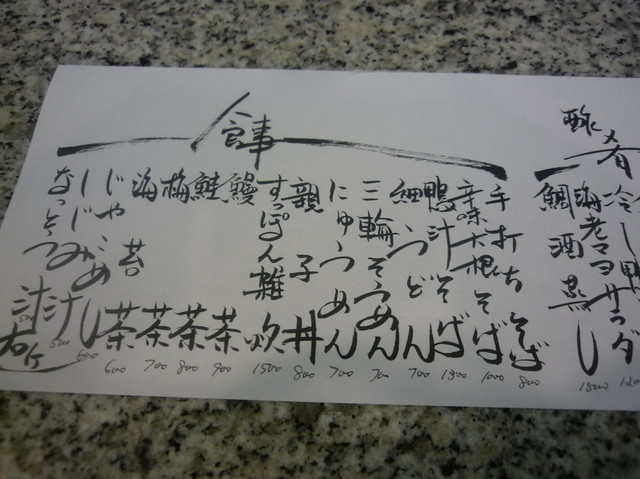 酢肴
冷し鴨サラダ
海老マヨ
鯛酒蒸し 1500
食事
手打ちそば 800
辛味大根そば 1000
鴨汁そば 1300
細うどん 700
三輪そうめん 700
にゅうめん 700
親子丼 800
すっぽん雑炊 1500
鰻茶 900
鮭茶 800
梅茶 700
海苔茶 600
じゃこめし 600
しじみ汁 500
なっとう汁